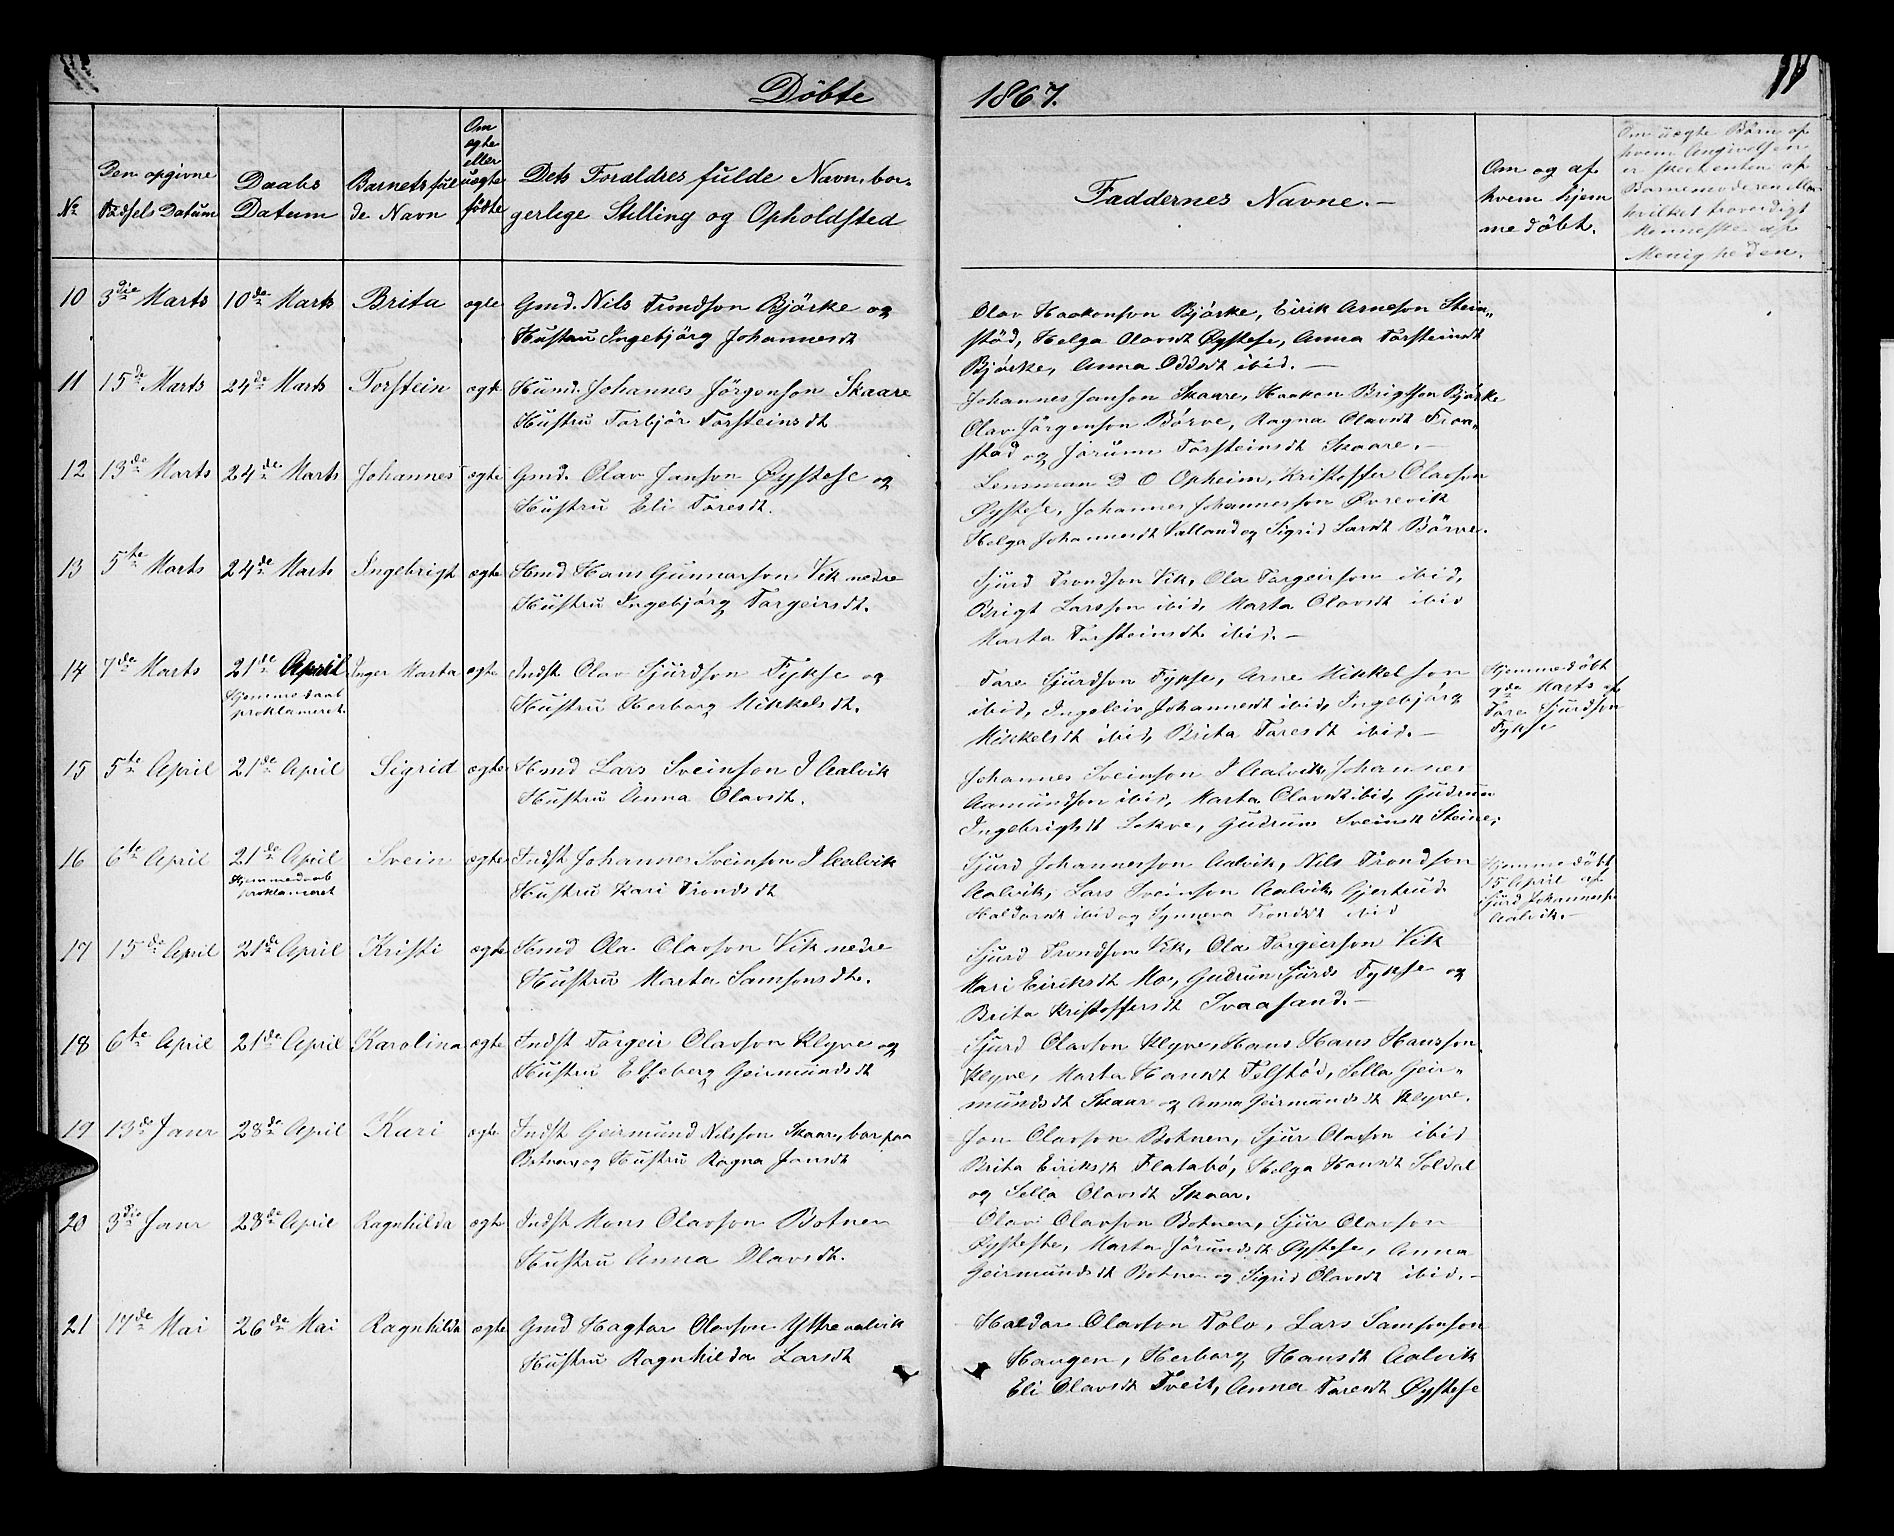 Döbte 1867.
No
Den opgivne Fødsels Datum
Daabs Datum
Barnets fulde Navn
Om ægte eller uægte födte
Dets Foraldres fulde Navn, borgerlige Stilling og Opholdsted
Faddernes Navne.—
Om og af hvem hjemmedöbt.
Om uægte Börn af hvem Angivelsen er skeet enten af Barnemoderen eller hvilket troværdigt Menneske af Menigheden.
10 3die Marts 10de Marts Brita ægte Gmd. Nils Trondson Bjørke og
Hustru Ingebjörg Johannesdt
Olav Haakonson Bjørke, Eirik Arneson Stein-
stöd, Helga Olavsdt Øystese, Anna Torsteinsdt
Bjørke, Anna Oddsdt ibid.—
11 15de Marts 24de Marts Torstein ægte Husmd. Johannes Jörgenson Skaare
Hustru Torbjör Torsteinsdt
Johannes Janson Skaare, Haakon Brigtson Bjørke
Olav Jörgenson Börve, Ragna Olavsdt Tron-
stad og Jorunn Torsteinsdt Skaare.—
12 13de Marts 24de Marts Johannes ægte Gmd. Olav Janson Øystese og
Hustru Eli Toresdt.
Lensman D O Opheim, Kristoffer Olavson
Øystese, Johannes Johannesson Øvrevik
Helga Johannesdt Valland og Sigrid Larsdt Börve.
13 5te Marts 24de Marts Ingebrigt ægte Hmd Hans Gunnarson Vik nedre
Hustru Ingebjörg Torgeirsdt.
Sjurd Trondson Vik, Ola Torgeirson ibid,
Brigt Larsson ibid, Marta Olavsdt ibid
Marta Torsteinsdt ibid.—
14 7de Marts 21de April Inger Marta ægte Indst Olav Sjurdson Fykse og
Hjemmedaab
proklameret.
Hustru Herborg Mikkelsdt.
Tore Sjurdson Fykse, Arne Mikkelson
ibid, Ingeleiv Johannesdt ibid, Ingebjörg
Mikkelsdt ibid, Brita Toresdt ibid.—
Hjemmedöbt
9de Marts af
Tore Sjurdson
Fykse
15 5te April 21de April Sigrid ægte Hmd Lars Sveinson I Aalvik
Hustru Anna Olavsdt.
Johannes Sveinson I Aalvik, Johannes
Aamundson ibid, Marta Olavsdt ibid, Gudrun
Ingebrigtsdt Lekve, Gudrun Sveinsdt Steine,
16 6te April 21de April Svein ægte Indst Johannes Sveinson I Aalvik
Hjemmedaab
proklameret
Hustru Kari Trondsdt
Sjurd Johannesson Aalvik, Nils Trondson
Aalvik, Lars Sveinson Aalvik, Gjertrud
Haldorsdt ibid og Synneva Trondsdt ibid
Hjemmedöbt
15 April af
Sjurd Johannesson
Aalvik.—
17 15de April 21de April Kristi ægte Hmd Ola Olavson Vik nedre
Hustru Marta Samsonsdt.
Sjurd Trondson Vik, Ola Torgeirson Vik
Mari Eiriksdt Mo, Gudrun Sjurds Fykse og
Brita Kristoffersdt Svaasand.—
18 6te April 21de April Karolina ægte Indst Torgeir Olavson Klyve og
Hustru Elseberg Geirmundsdt
Sjurd Olavson Klyve, Hans Hans Hansson
Klyve, Marta Hansdt Tolstöd, Sella Geir-
mundsdt Skaar og Anna Geirmundsdt Klyve.
19 13de Janr 28de April Kari ægte Indst Geirmund Nilsson Skaar, bor paa
Botnen og Hustru Ragna Jonsdt
Jon Olavson Botnen, Sjur Olavson ibid
Brita Eiriksdt Flatabö, Helga Hansdt Soldal
og Sella Olavsdt Skaar.
20 3die Janr 28de April Ragnhilda ægte Indst Mons Olavson Botnen
Hustru Anna Olavsdt.
Olav Olavson Botnen, Sjur Olavson
Øystese, Marta Jörundsdt Øystese, Anna
Geirmundsdt Botnen og Sigrid Olavsdt ibid.—
21 17de Mai 26de Mai Ragnhilda ægte Gmd Hagtor Olavson Ytre aalvik
Hustru Ragnhilda Larsdt
Haldor Olavson Tolo, Lars Samsonson
Haugen, Herborg Hansdt Aalvik
Eli Olavsdt Tveit, Anna Toresdt Øystese